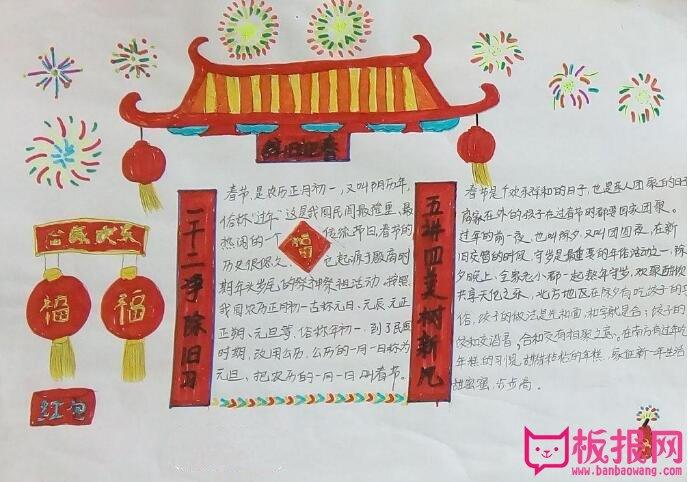 辞旧迎春
合家欢乐
福
福
红包
一干二净除旧习
五讲四美树新风
福
春节,是农历正月初一,又叫阴历年,
俗称"过年"这是我国民间最隆重、最
热闹的一个 传统节日,春节的
历史很悠久、 它起源于殷商时
期年头岁尾的祭神祭祖活动。按照
我国农历正月初一古称元日、元辰元正
正朔、元旦等,俗称年初一,到了民国
时期,改用公历,公历的一月一日称为
元旦,把农历的一月一日叫春节。
春节是个欢乐祥和的日子,也是亲人团聚的日子
离家在外的孩子在过春节时都要回家团聚。
过年的前一夜,也叫除夕,又叫团圆夜,在新
旧交替的时候,守岁是最重要的年俗活动之一,除
夕晚上,全家老小都一起熬年守岁,欢聚酣饮
共享天伦之乐,北方地区在除夕有吃饺子的习
俗,饺子的做法是先和面,和字就是合;饺子的
饺和交谐音,合和交有相聚之意。在南方有过年吃
年糕的习惯,甜甜粘粘的年糕,象征新一年生活
甜蜜蜜,步步高。
板报网
www.banbaowang.com